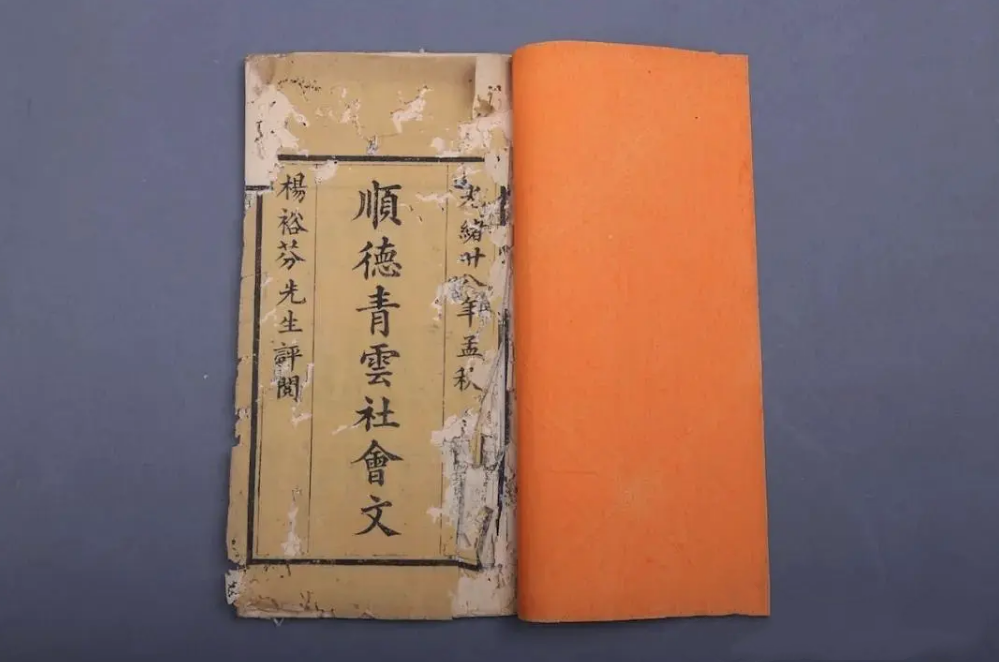 光緒廿八年孟秋
順德青雲社會文
楊裕芬先生評閱